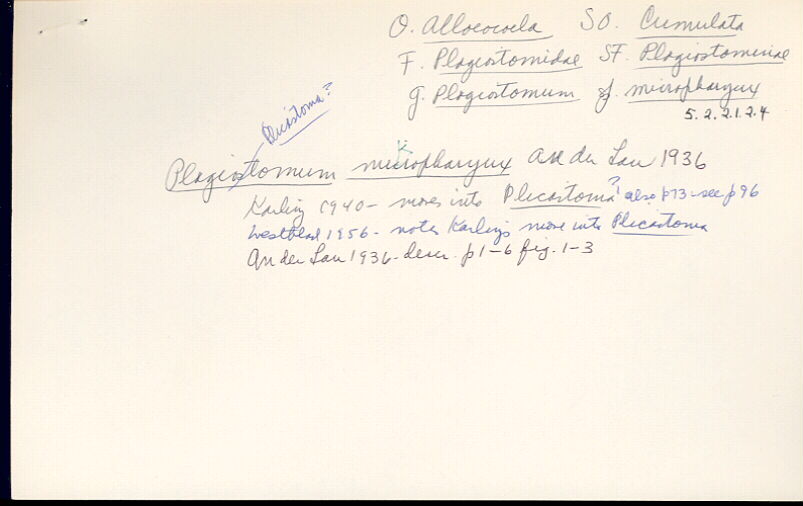 O. Alloeocoela SO. Cumulata
F. Plagiostomidae SF. Plagiostominae
g. Plagiostomum sp. micropharynx
5.2.2.1.2.4
Plicastoma?
Plagiostomum micropharynx An der Lan 1936
k
Karling 1940 - moves into Plicastoma? also p73 - see p96
Westblad 1956 - notes Karling's move into Plicastoma
An der Lan 1936 - descr. p1-6 fig. 1-3